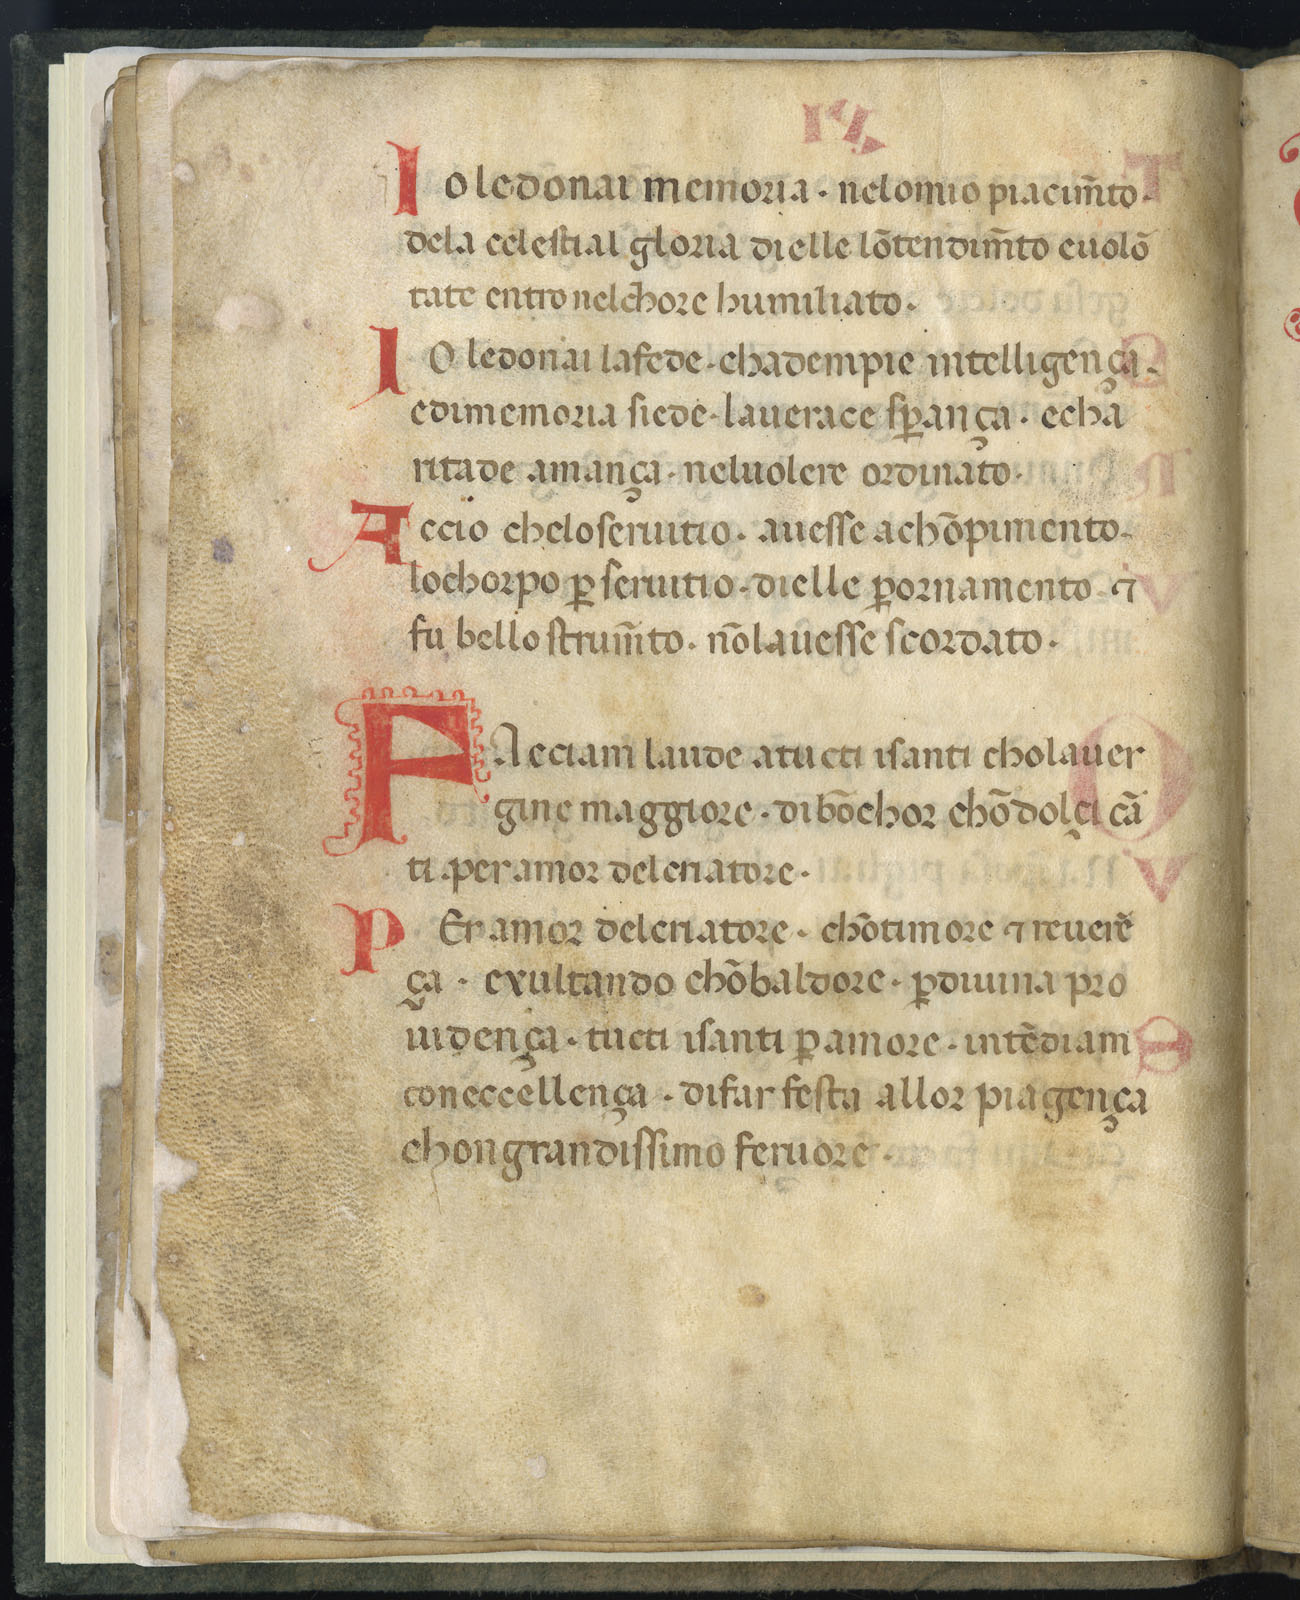 Io le donai memoria · nelo mio piacim̄to ·
dela celestial gloria di elle lōtendim̄to e uolō
tate entro nel chore humiliato ·
IO le donai la fede · chadempie intelligença ·
e di memoria siede · la uerace sꝑança · e cha
ritade amança · nel uolere ordinato ·
Accio che lo seruitio · auesse achōpimento ·
lo chorpo ꝑ seruitio · di elle ꝑ ornamento · ⁊
fu bello strum̄to · nō lauesse scordato ·
FAcciam laude a tucti i santi chola uer
gine maggiore · di bō chor chō dolçi cā
ti · per amor del criatore ·
PEr amor del criatore · chō timore ⁊ reuerē
ça · exultando chō baldore · ꝑ diuina pro
uidença · tucti i santi ꝑ amore · intēdiam
con eccellença · di far festa allor piagença
chon grandissimo feruore ·